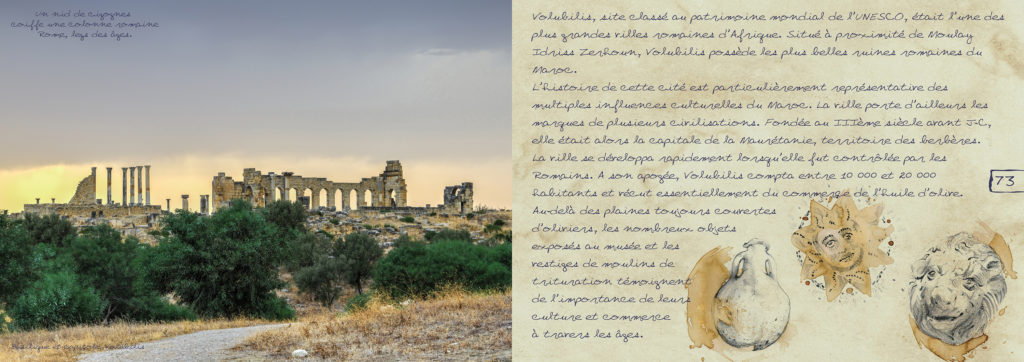 Un nid de cigognes
coiffe une colonne romaine
Rome, legs des âges.
Volubilis, site classé au patrimoine mondial de l'UNESCO, était l'une des
plus grandes villes romaines d'Afrique. Situé à proximité de Moulay
Idriss Zerhoun, Volubilis possède les plus belles ruines romaines du
Maroc.
L'histoire de cette cité est particulièrement représentative des
multiples influences culturelles du Maroc. La ville porte d'ailleurs les
marques de plusieurs civilisations. Fondée au IIIème siècle avant J-C,
elle était alors la capitale de la Maurétanie, territoire des berbères.
La ville se développa rapidement lorsqu'elle fut contrôlée par les
Romains. A son apogée, Volubilis compta entre 10 000 et 20 000
habitants et vécut essentiellement du commerce de l'huile d'olive.
Au-delà des plaines toujours couvertes
d'oliviers, les nombreux objets
exposés au musée et les
vestiges de moulins de
trituration témoignent
de l'importance de leurs
culture et commerce
à travers les âges.
73